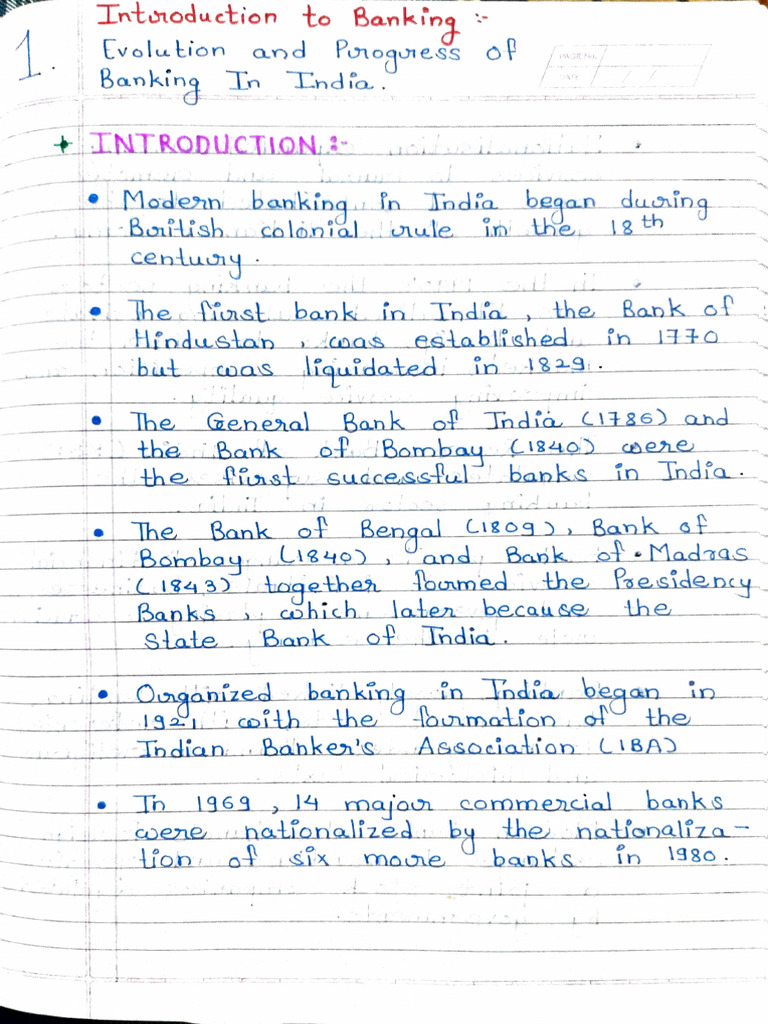 Introduction to Banking :-
1.
Evolution and Progress of
Banking In India.
PAGE No.
DATE
INTRODUCTION :-
• Modern banking in India began during
British colonial rule in the 18th
century.
• The first bank in India, the Bank of
Hindustan, was established in 1770
but was liquidated in 1829.
• The General Bank of India (1786) and
the Bank of Bombay (1840) were
the first successful banks in India.
• The Bank of Bengal (1809), Bank of
Bombay (1840), and Bank of Madras
(1843) together formed the Presidency
Banks, which later because the
State Bank of India.
• Organized banking in India began in
1921 with the formation of the
Indian Banker's Association (IBA)
• In 1969, 14 major commercial banks
were nationalized by the nationaliza-
tion of six more banks in 1980.